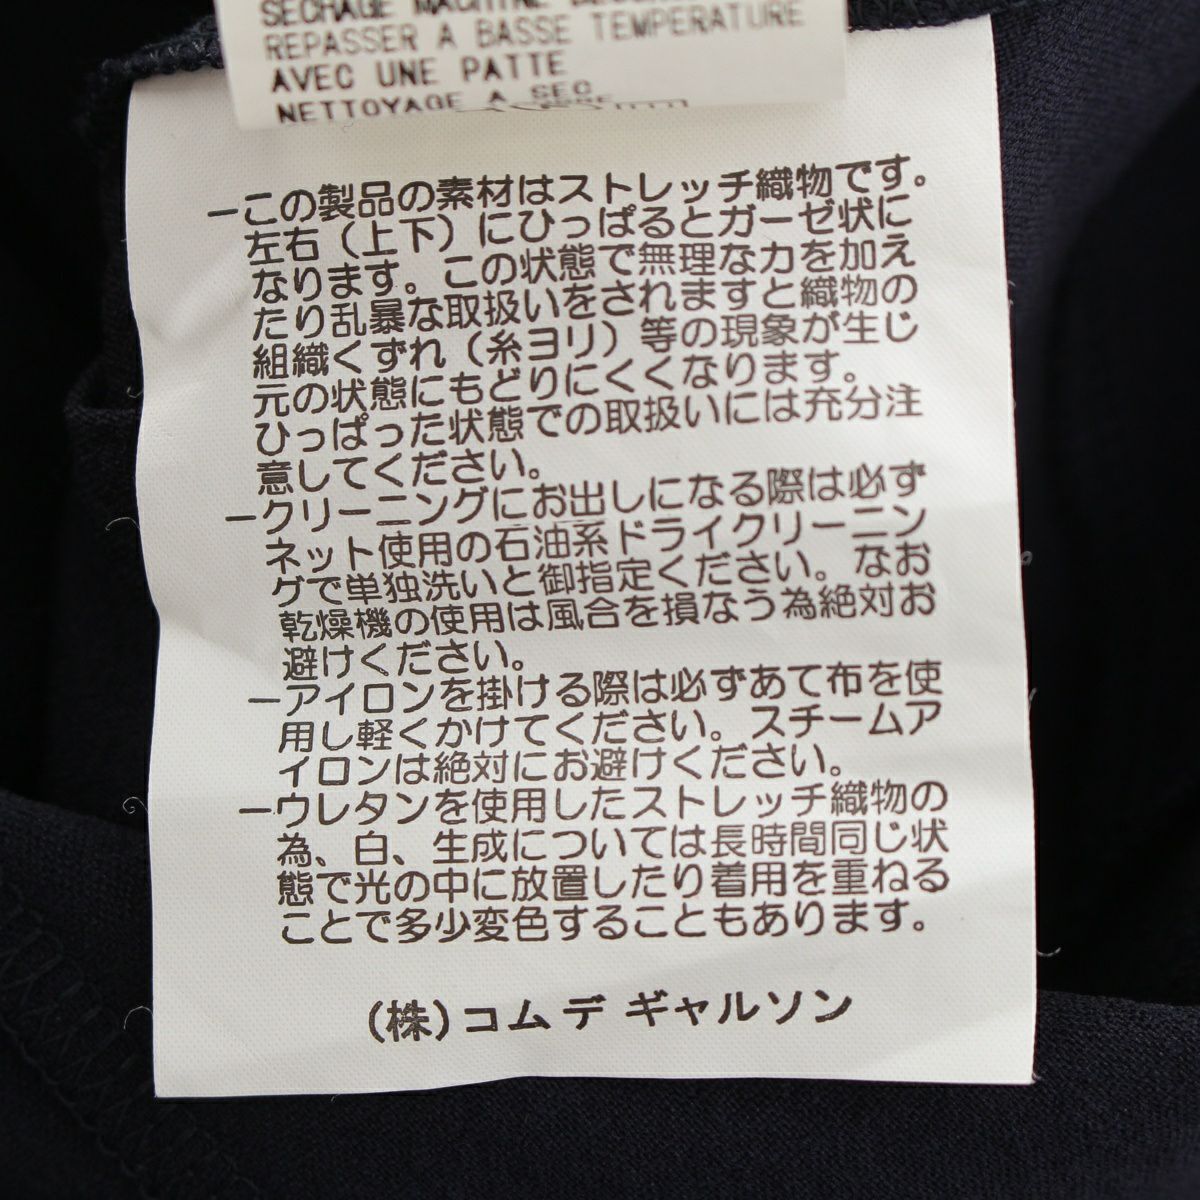 REPASSER A BASSE TEMPERATURE
AVEC UNE PATTE
NETTOYAGE A SEC
－この製品の素材はストレッチ織物です。
左右（上下）にひっぱるとガーゼ状に
なります。この状態で無理な力を加え
たり乱暴な取扱いをされますと織物の
組織くずれ（糸ヨリ）等の現象が生じ
元の状態にもどりにくくなります。
ひっぱった状態での取扱いには充分注
意してください。
－クリーニングにお出しになる際は必ず
ネット使用の石油系ドライクリーニン
グで単独洗いと御指定ください。なお
乾燥機の使用は風合を損なう為絶対お
避けください。
－アイロンを掛ける際は必ずあて布を使
用し軽くかけてください。スチームア
イロンは絶対にお避けください。
－ウレタンを使用したストレッチ織物の
為、白、生成については長時間同じ状
態で光の中に放置したり着用を重ねる
ことで多少変色することもあります。
(株)コム デ ギャルソン